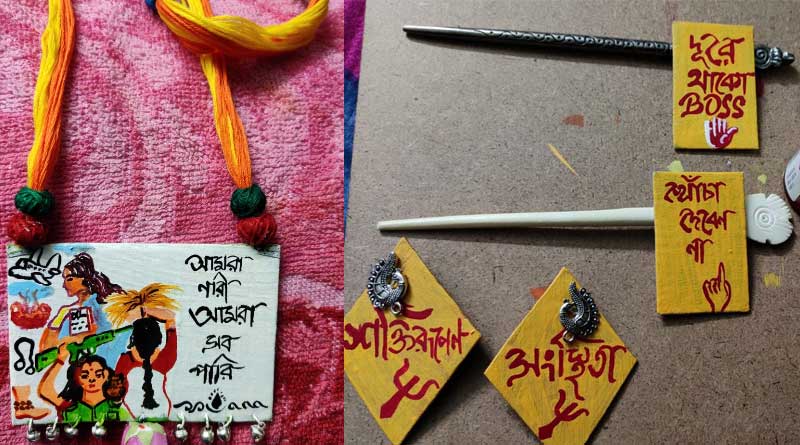 আমরা
নারী
আমরা
সব
পারি
দূরে
থাকো
BOSS
খোঁচা
দেবেন
না
শক্তিরূপেন
সংস্থিতা